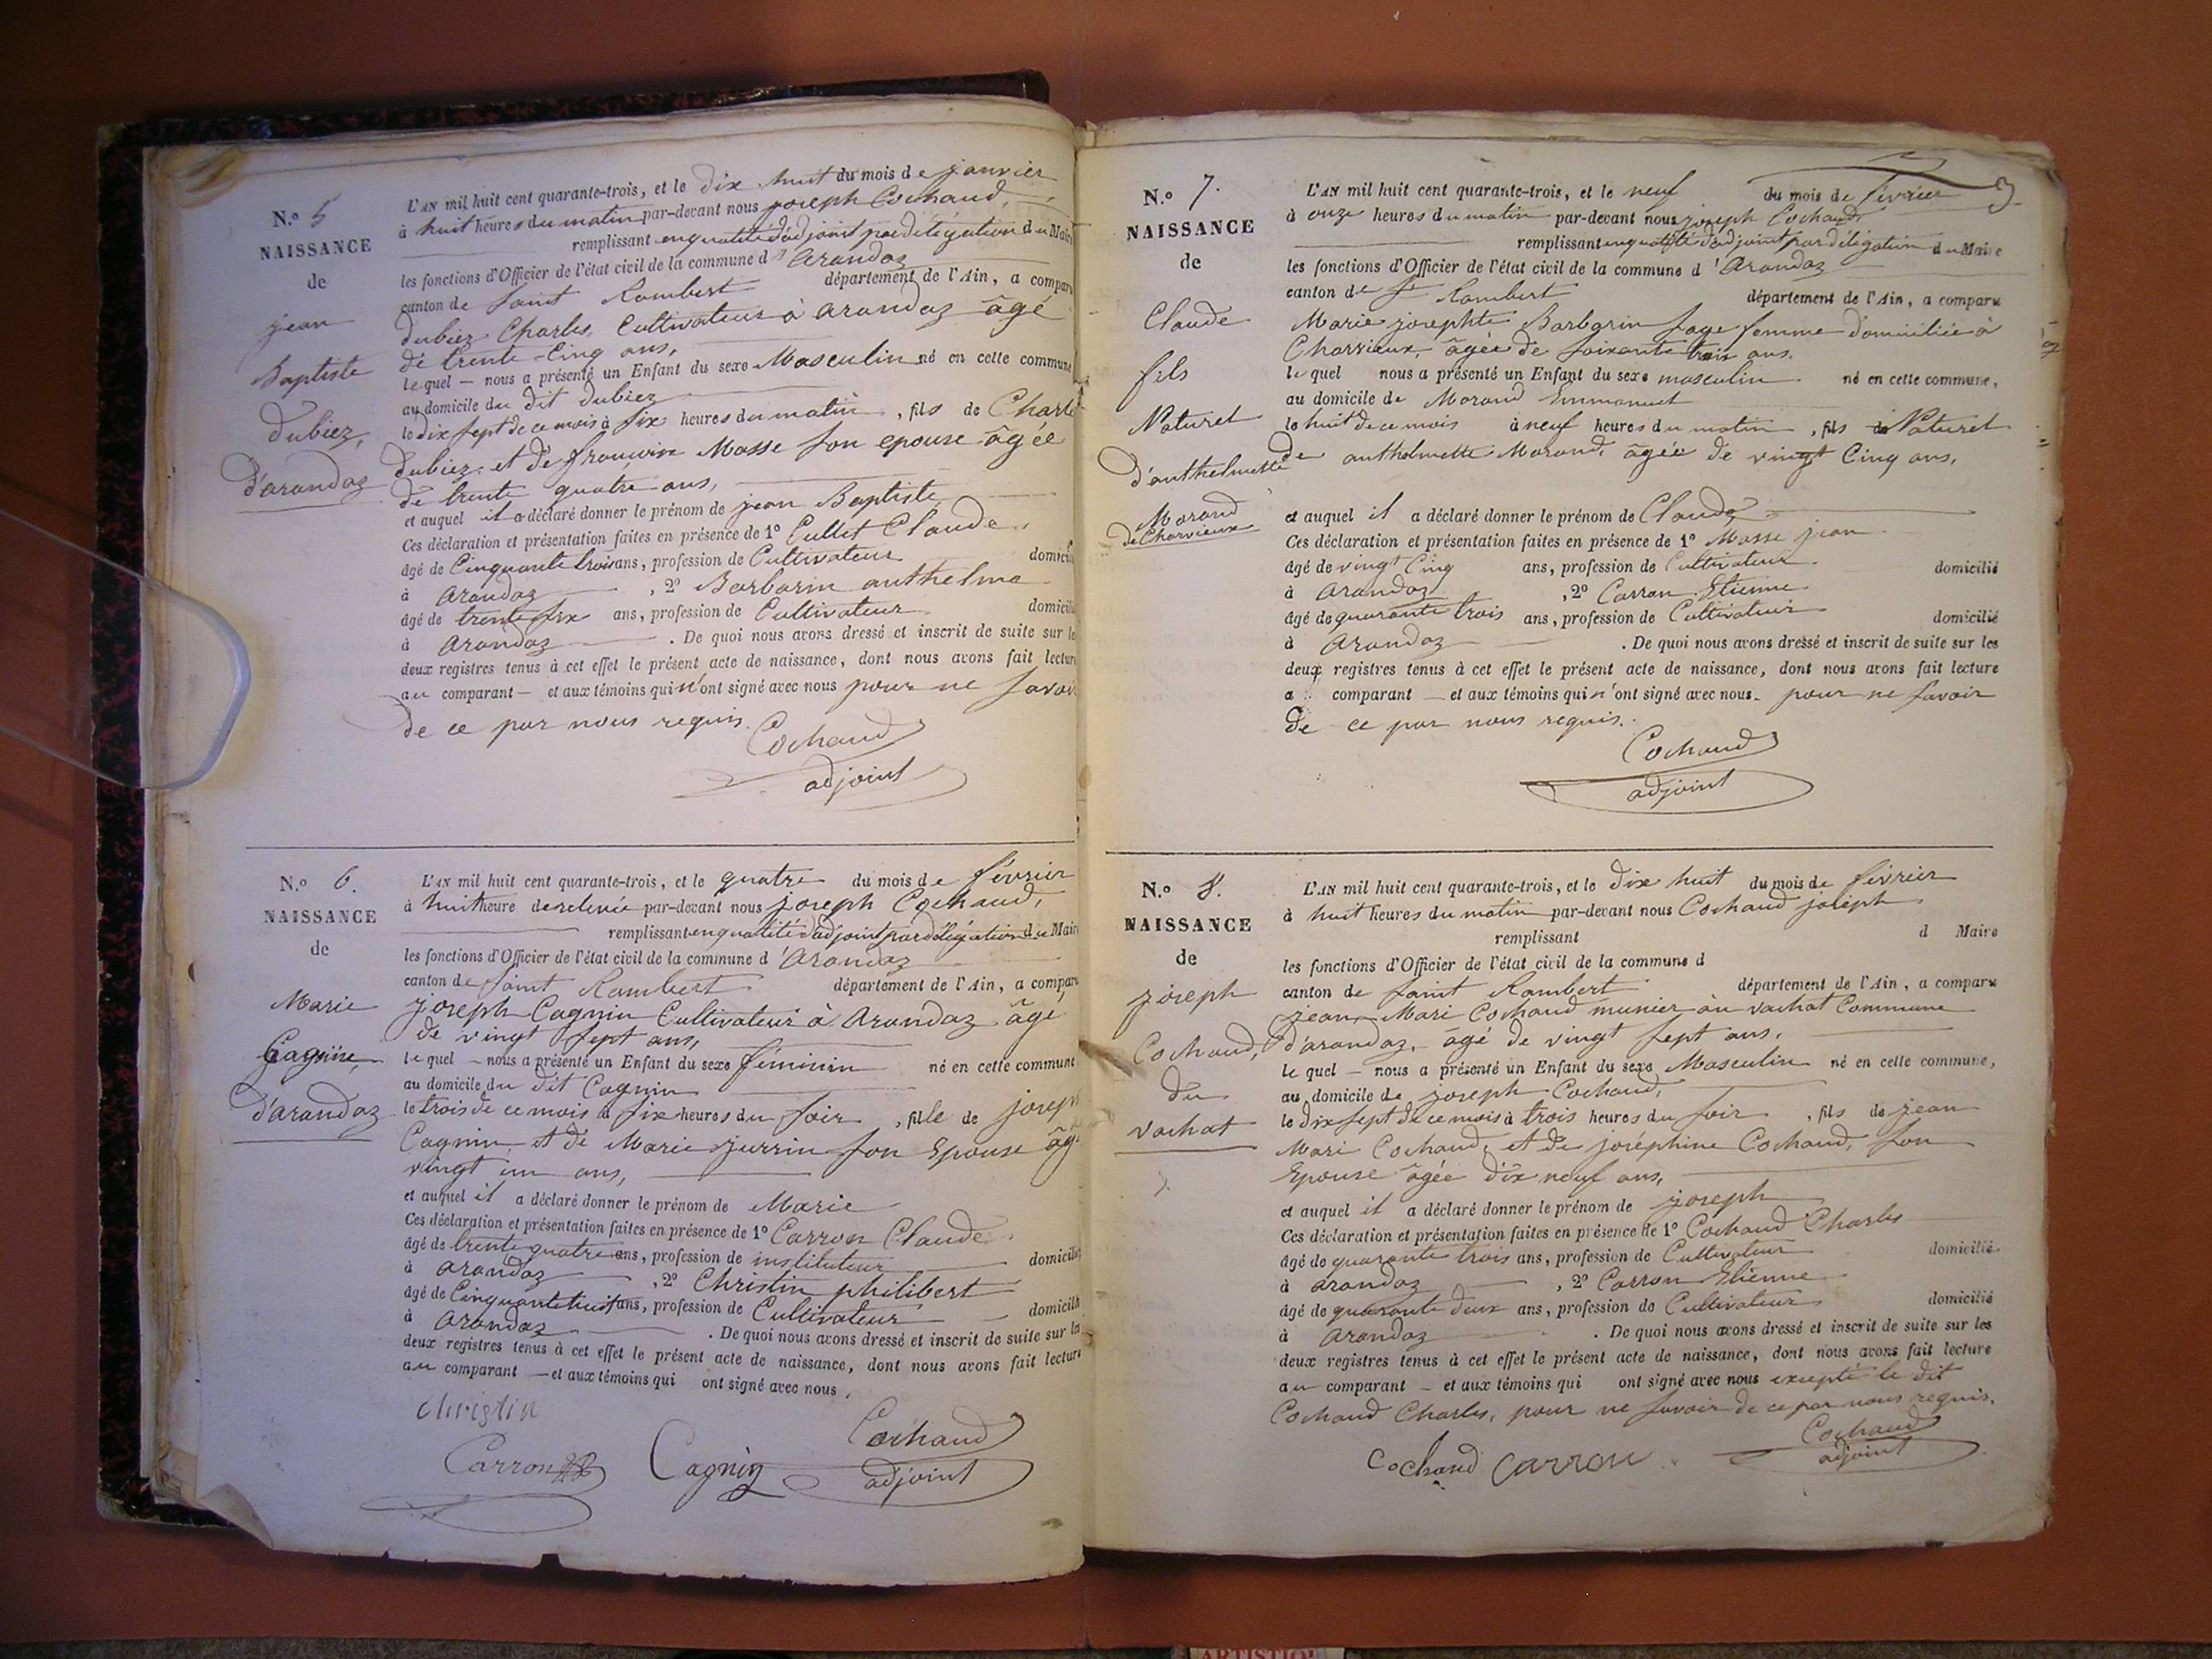 N.° 5
NAISSANCE
de
jean
Baptiste
Dubiez,
d'arandaz
L'AN mil huit cent quarante-trois, et le dix huit du mois de janvier
à huit heures du matin par-devant nous joseph Cochaud,
remplissant en qualité d'adjoint par délégation du Maire
les fonctions d'Officier de l'état civil de la commune d'Arandaz
canton de Saint Rambert département de l'Ain, a comparu
Dubiez Charles, Cultivateur à Arandaz âgé
de trente-Cinq ans,
lequel — nous a présenté un Enfant du sexe Masculin né en cette commune
au domicile du dit Dubiez
le dix sept de ce mois à six heures du matin, fils de Charles
Dubiez, et de Masse son epouse âgée
de trente quatre ans,
et auquel il a déclaré donner le prénom de jean Baptiste
Ces déclaration et présentation faites en présence de 1° Cullet Claude
âgé de Cinquante trois ans, profession de Cultivateur domicilié
à Arandaz, 2° Barbarin anthelme
âgé de trente six ans, profession de Cultivateur domicilié
à Arandaz. De quoi nous avons dressé et inscrit de suite sur les
deux registres tenus à cet effet le présent acte de naissance, dont nous avons fait lecture
au comparant — et aux témoins qui n'ont signé avec nous pour ne savoir
de ce par nous requis.
Cochaud
adjoint
N.° 6.
NAISSANCE
de
Marie
Cagnin,
d'arandaz
L'AN mil huit cent quarante-trois, et le quatre du mois de février
à huit heure de relevée par-devant nous joseph Cochaud,
remplissant en qualité d'adjoint par délégation du Maire
les fonctions d'Officier de l'état civil de la commune d'Arandaz
canton de Saint Rambert département de l'Ain, a comparu
joseph Cagnin Cultivateur à Arandaz âgé
de vingt sept ans,
lequel — nous a présenté un Enfant du sexe féminin né en cette commune
au domicile du dit Cagnin
le trois de ce mois à six heures du soir, fille de joseph
Cagnin, et de Marie jurrin son Epouse âgé
vingt un ans,
et auquel il a déclaré donner le prénom de Marie
Ces déclaration et présentation faites en présence de 1° Carron Claude
âgé de trente quatre ans, profession de instituteur domicilié
à arandaz, 2° Christin philibert
âgé de Cinquante huit ans, profession de Cultivateur domicilié
à Arandaz. De quoi nous avons dressé et inscrit de suite sur les
deux registres tenus à cet effet le présent acte de naissance, dont nous avons fait lecture
au comparant — et aux témoins qui ont signé avec nous.
christin
Cochaud
Carron Cagnin adjoint
3
N.° 7.
NAISSANCE
de
Claude
fils
Naturel
d'anthelmette
Morand
de Charvieux
L'AN mil huit cent quarante-trois, et le neuf du mois de février
à onze heures du matin par-devant nous joseph Cochaud
remplissant en qualité d'adjoint par délégation du Maire
les fonctions d'Officier de l'état civil de la commune d'Arandaz
canton de St Rambert département de l'Ain, a comparu
Marie josephte Barbarin sage femme domiciliée à
Charvieux, âgée de soixante trois ans.
lequel nous a présenté un Enfant du sexe masculin né en cette commune,
au domicile de Morand Emmanuel
le huit de ce mois à neuf heures du matin, fils de Naturel
de anthelmette Morand, âgée de vingt Cinq ans,
et auquel il a déclaré donner le prénom de Claude
Ces déclaration et présentation faites en présence de 1° Masse jean
âgé de vingt Cinq ans, profession de Cultivateur domicilié
à Arandaz, 2° Carron Etienne
âgé de quarante trois ans, profession de Cultivateur domicilié
à Arandaz. De quoi nous avons dressé et inscrit de suite sur les
deux registres tenus à cet effet le présent acte de naissance, dont nous avons fait lecture
a comparant — et aux témoins qui n'ont signé avec nous. pour ne savoir
de ce par nous requis.
Cochaud
adjoint
N.° 8.
NAISSANCE
de
joseph
Cochaud,
du
vachat
L'AN mil huit cent quarante-trois, et le dix huit du mois de février
à huit heures du matin par-devant nous Cochaud joseph
remplissant d Maire
les fonctions d'Officier de l'état civil de la commune d
canton de Saint Rambert département de l'Ain, a comparu
jean Mari Cochaud munier au vachat Commune
d'arandaz, âgé de vingt sept ans,
lequel — nous a présenté un Enfant du sexe Masculin né en cette commune,
au domicile de joseph Cochaud,
le dix sept de ce mois à trois heures du soir, fils de jean
Mari Cochaud, et de joséphine Cochaud, son
Epouse âgée dix neuf ans,
et auquel il a déclaré donner le prénom de joseph
Ces déclaration et présentation faites en présence de 1° Cochaud Charles
âgé de quarante trois ans, profession de Cultivateur domicilié
à arandaz, 2° Carron Etienne
âgé de quarante deux ans, profession de Cultivateur domicilié
à Arandaz. De quoi nous avons dressé et inscrit de suite sur les
deux registres tenus à cet effet le présent acte de naissance, dont nous avons fait lecture
au comparant — et aux témoins qui ont signé avec nous excepté le dit
Cochaud Charles, pour ne savoir de ce par nous requis.
Cochaud
Cochaud carron adjoint